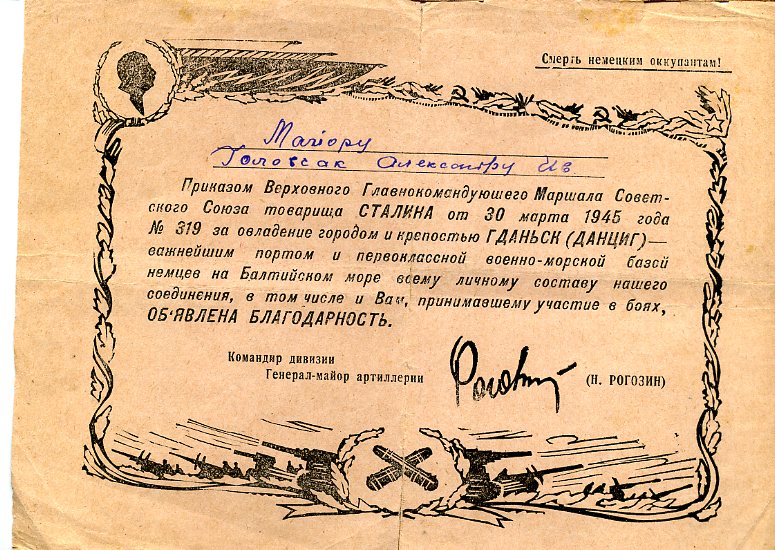 Смерть немецким оккупантам!
Майору
Александру Ив
Приказом Верховного Главнокомандующего Маршала Совет-
ского Союза товарища СТАЛИНА от 30 марта 1945 года
№ 319 за овладение городом и крепостью ГДАНЬСК (ДАНЦИГ)—
важнейшим портом и первоклассной военно-морской базой
немцев на Балтийском море всему личному составу нашего
соединения, в том числе и Вам, принимавшему участие в боях,
ОБ'ЯВЛЕНА БЛАГОДАРНОСТЬ.
Командир дивизии
Генерал-майор артиллерии
(Н. РОГОЗИН)